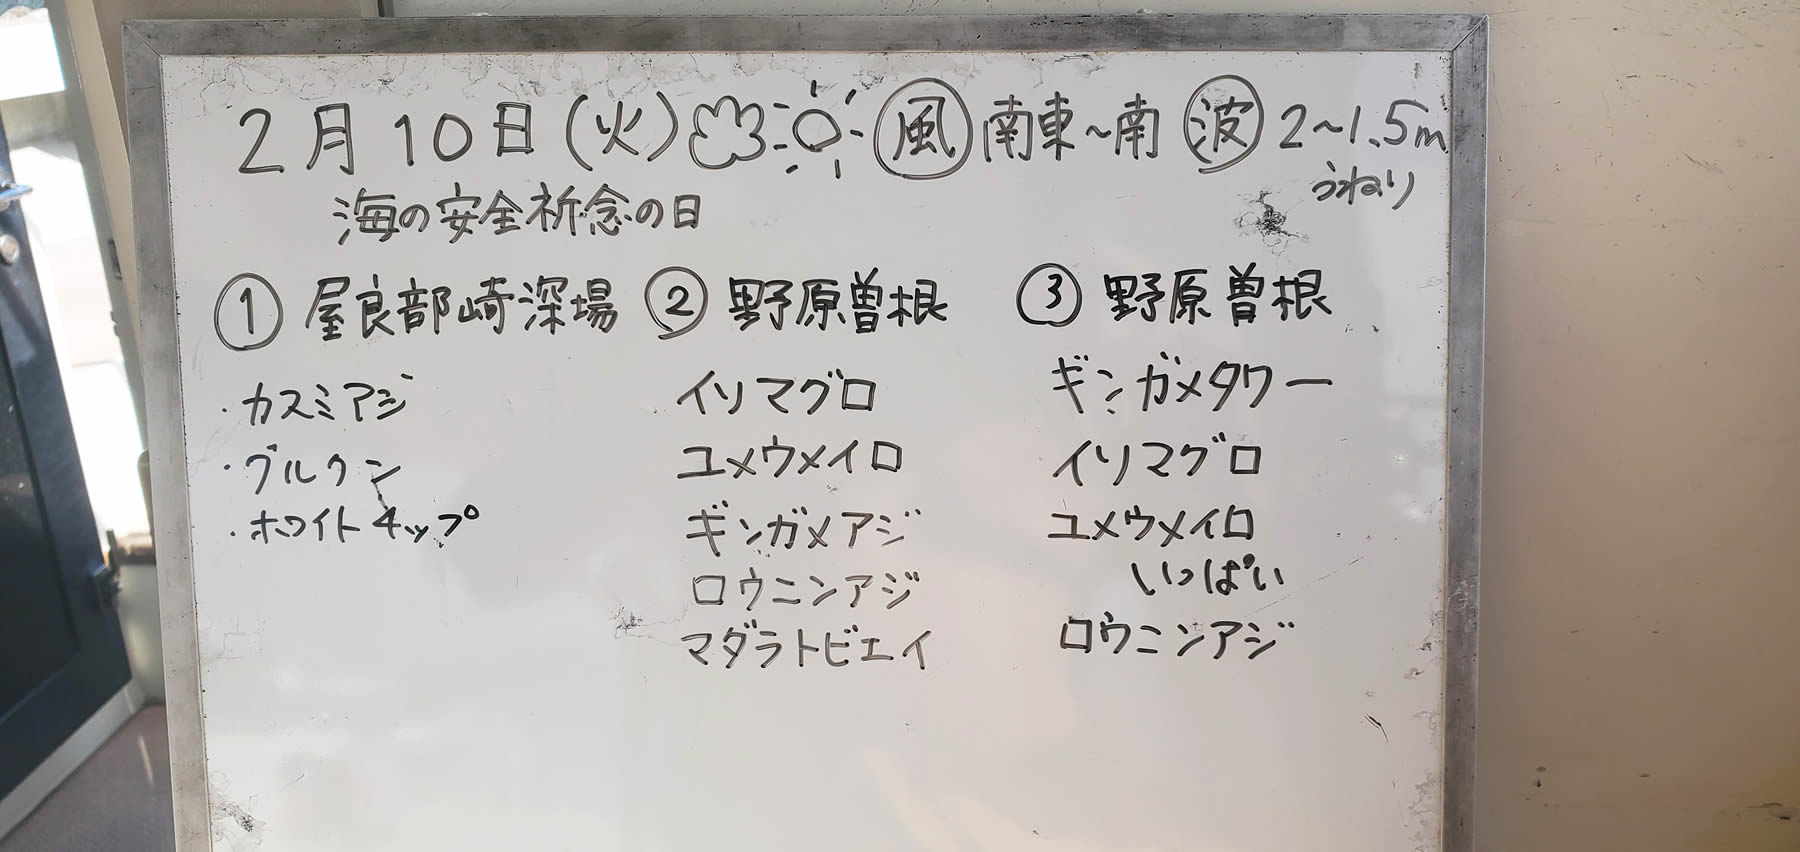 2月10日(火) 風 南東~南 波 2~1.5m
うねり
海の安全祈念の日
① 屋良部崎深場
・カスミアジ
・グルクン
・ホワイトチップ
② 野原曽根
イソマグロ
ユメウメイロ
ギンガメアジ
ロウニンアジ
マダラトビエイ
③ 野原曽根
ギンガメタワー
イソマグロ
ユメウメイロ
いっぱい
ロウニンアジ